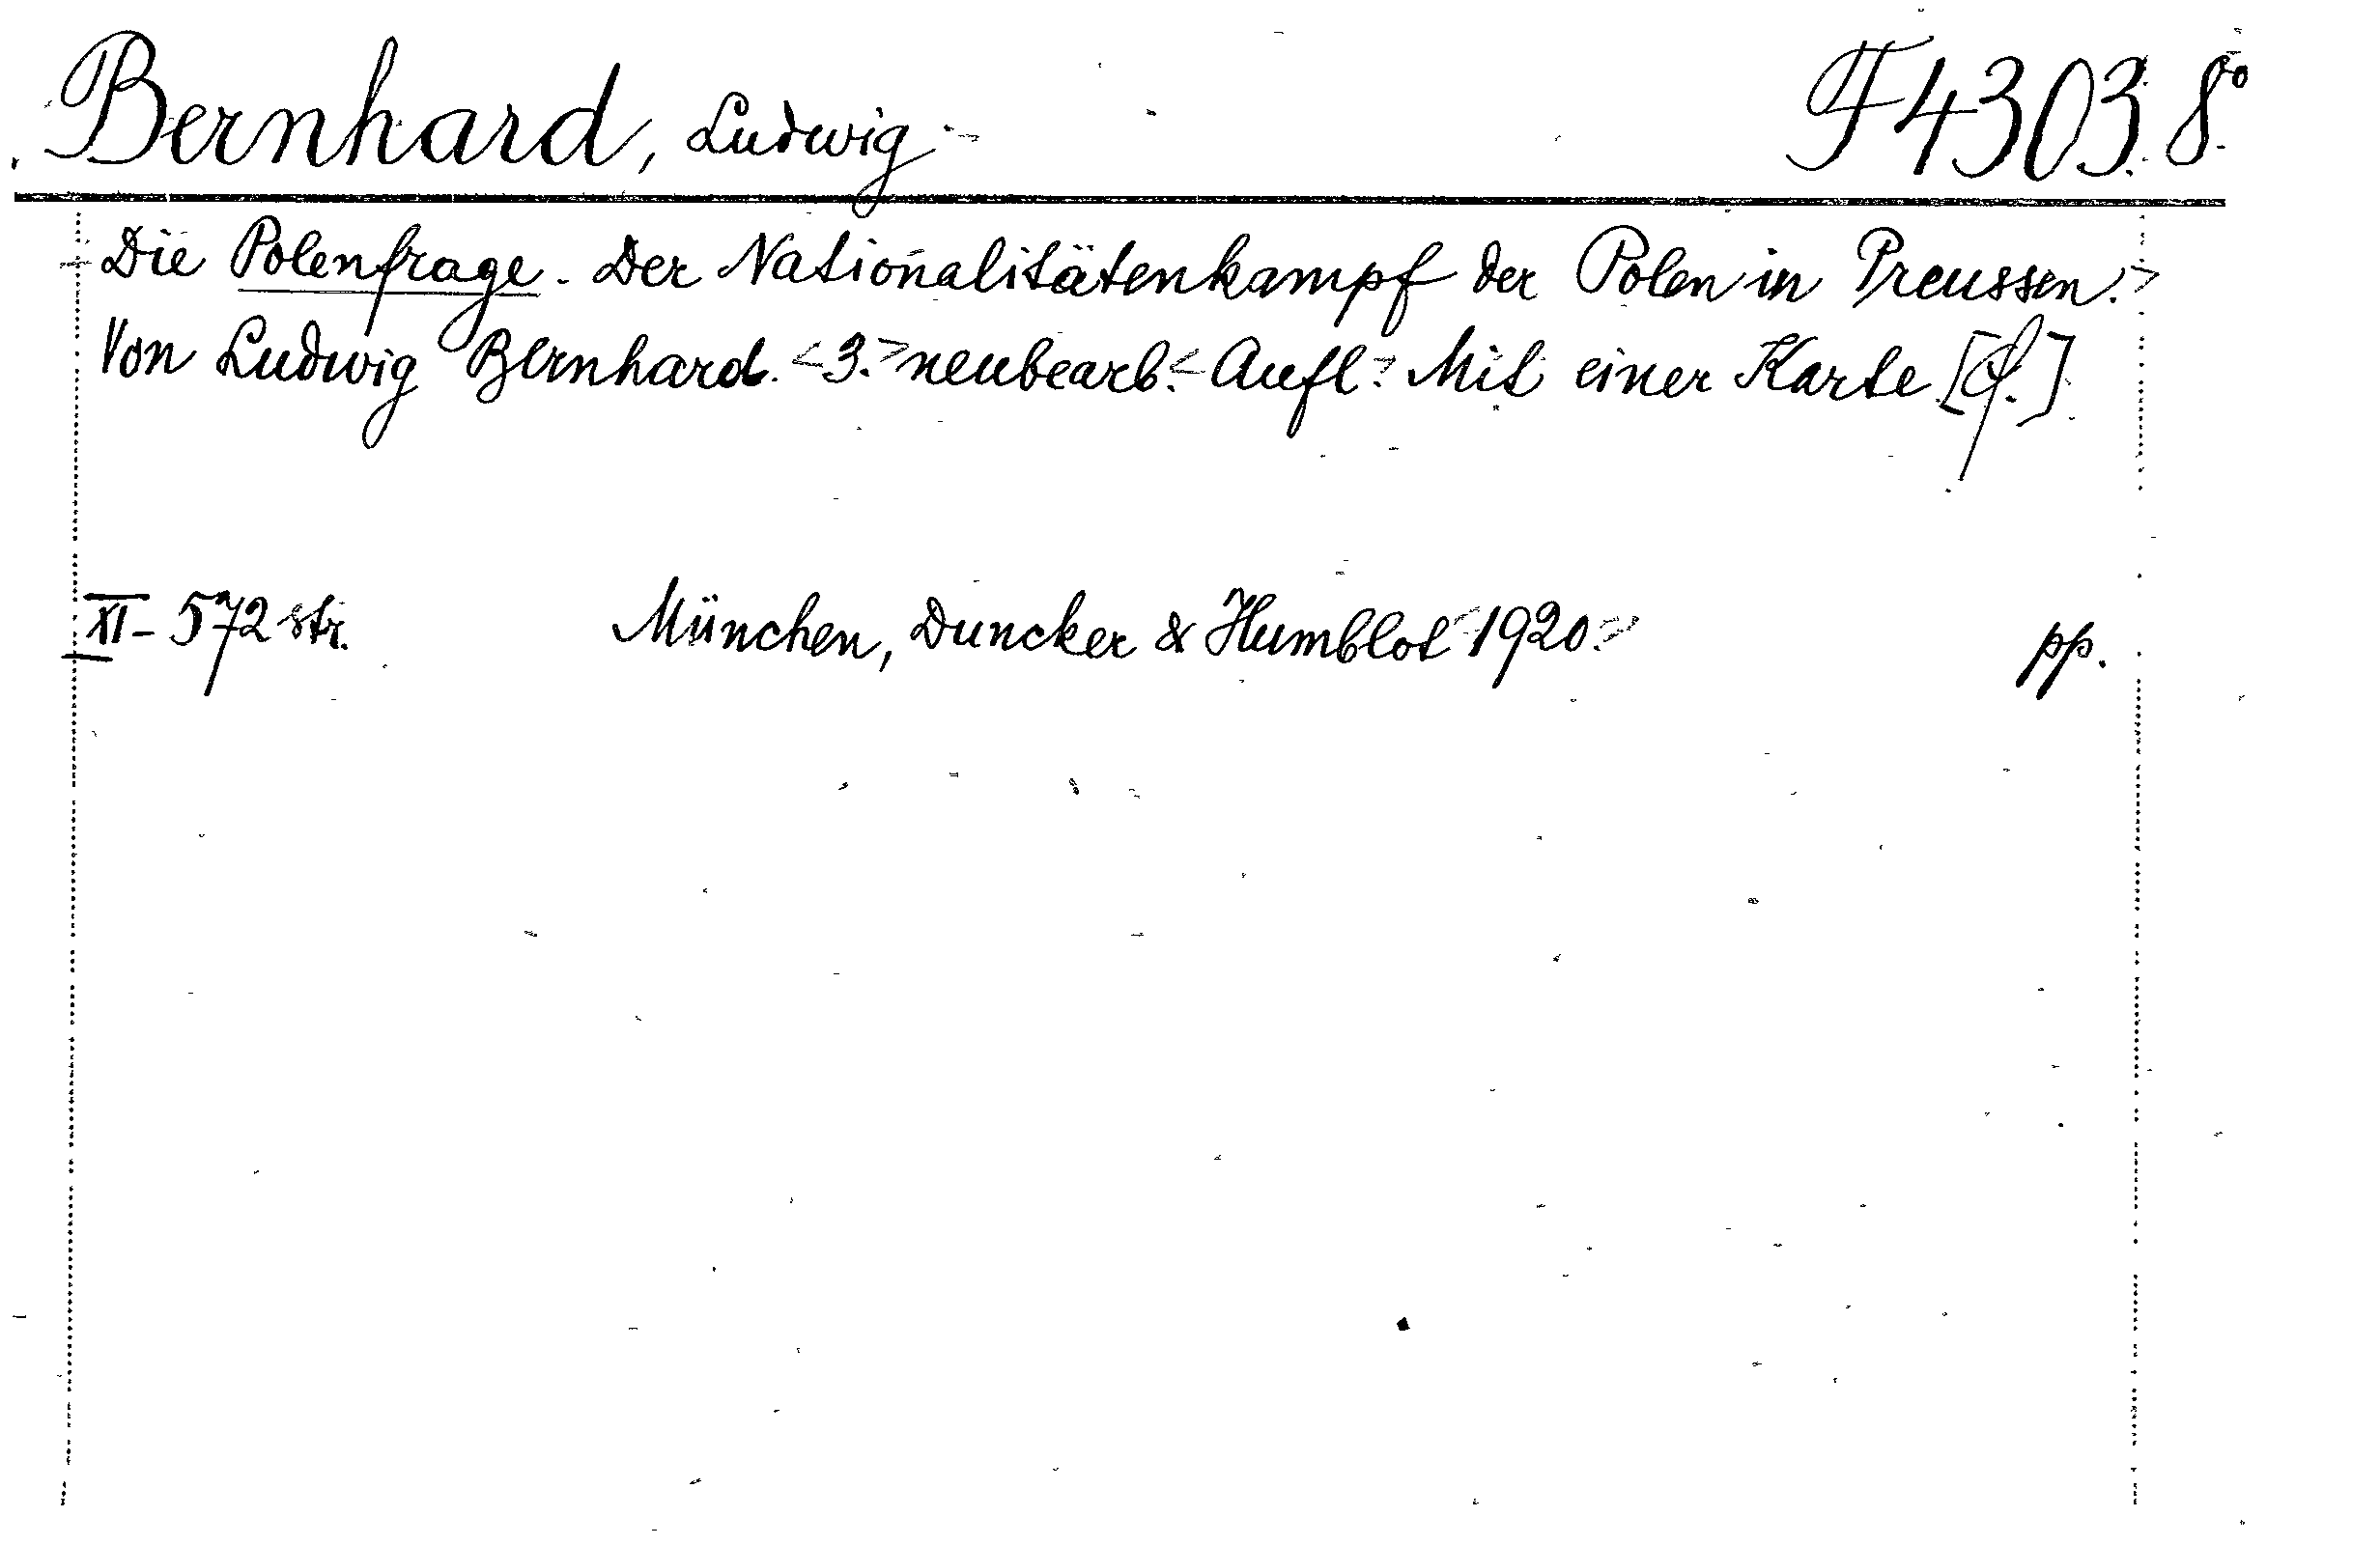 Bernhard, Ludwig F 4303. 8º
Die Polenfrage. Der Nationalitätenkampf der Polen in Preussen.
Von Ludwig Bernhard. <3.> neubearb. <Aufl.> Mit einer Karte
XI - 572 str. München, Duncker & Humblot <1920.> pp.